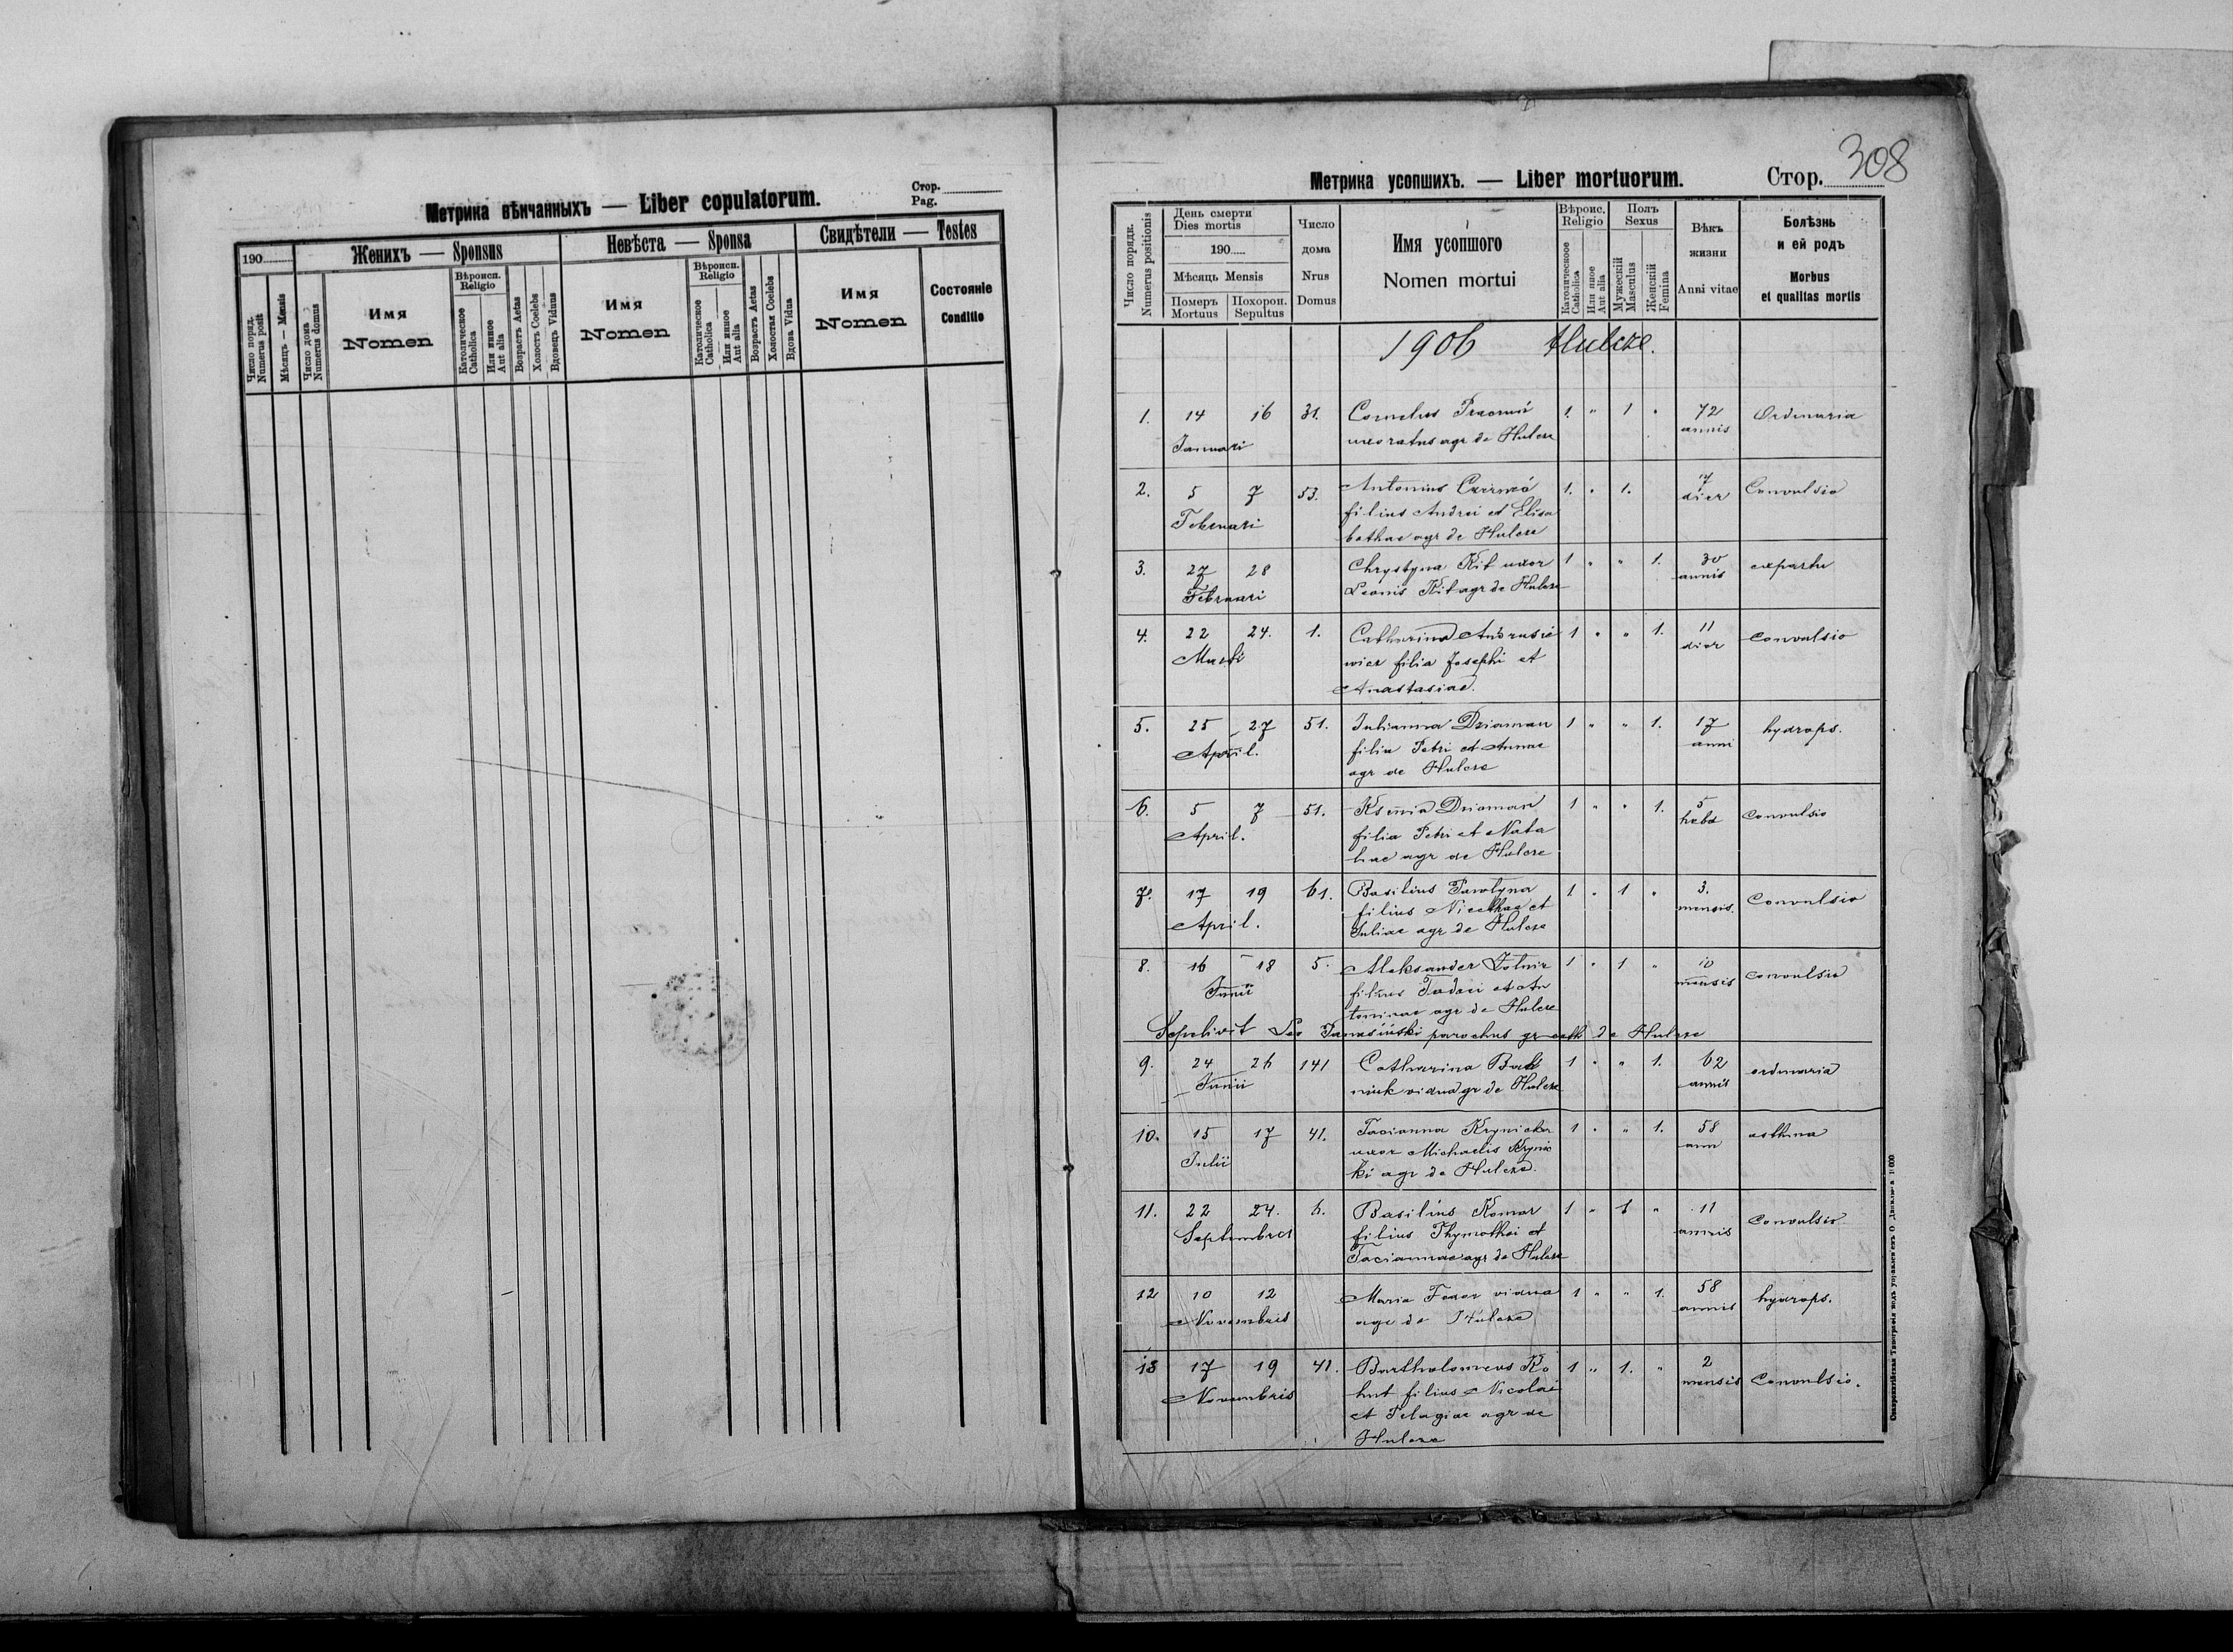 Метрика вѣнчанныхъ — Liber copulatorum.
Стор.
Pag.
190
Женихъ — Sponsus
Невѣста — Sponsa
Свидѣтели — Testes
Число поряд.
Numerus posit
Мѣсяць — Mensis
Число дома
Numerus domus
Имя
Nomen
Вѣроисп.
Religio
Католическое
Catholica
Или инное
Aut alia
Возрастъ Aetas
Холостъ Coelebs
Вдовецъ Viduus
Имя
Nomen
Вѣроисп.
Religio
Католическое
Catholica
Или инное
Aut alia
Возрастъ Aetas
Холостая Coelebs
Вдова Vidua
Имя
Nomen
Состояніе
Conditio
308
Метрика усопшихъ. — Liber mortuorum.
Стор.
Число порядк.
Numerus positionis
День смерти
Dies mortis
190
Мѣсяць Mensis
Померъ
Mortuus
Похорон.
Sepultus
Число
дома
Nrus
Domus
Имя усопшого
Nomen mortui
Вѣроис.
Religio
Католическое
Catholica
Или иное
Aut alia
Полъ
Sexus
Мужескій
Masculus
Женскій
Femina
Вѣкъ
жизни
Anni vitae
Болѣзнь
и ей родъ
Morbus
et qualitas mortis
1906 Hulcze.
1. 14 16 31. Cornelius 1. " 1 " 72 Ordinaria
Januari uxoratus agr de Hulcze annis
2. 5 7 53. Antonius 1. " 1. 7 Convulsio
Februari filius Andrei et Elisa dier
bethae agr de Hulcze
3. 27 28 Chrystyna Kit uxor 1 " " 1. 30 expartu
Februari Leonis Kit agr de Hulcze annis
4. 22 24. 1. Catharina Andrusie 1 " " 1. 11 Convulsio
Marti wicz filia Josephi et dier
Anastasiae.
5. 25 27 51. Julianna Dziaman 1 " " 1. 17 hydrops.
April. filia Petri et Annae anni
agr de Hulcze
6. 5 7 51. Ksenia Dziaman 1 " " 1. 5 Convulsio
April. filia Petri et Nata hebd
liae agr de Hulcze
7. 17 19 61. Basilius Parolyna 1 " 1 " 3. Convulsio
April. filius Nicethae et mensis.
Juliae agr de Hulcze
8. 16 18 5. Aleksander Zolnir 1 " 1 " 10 convulsio
Junii filius Tadaei et An mensis
toninae agr de Hulcze
Sepelivit Leo parochus gr cath de Hulcze
9. 24 26 141 Catharina 1 " " 1. 62 ordinaria
Junii vidua gr de Hulcze annis
10. 15 17 41. Tacianna Krynicka 1 " " 1. 58 asthma
Julii uxor Michaelis Krynic ann
ki agr de Hulcze.
11. 22 24. 6. Basilius Komar 1 " 1 " 11 Convulsio
Septembris filius Thymothei et annis
Taciannae agr de Hulcze
12 10 12 Maria Fedor vidua 1 " " 1. 58 hydrops.
Novembris agr de Hulcze annis
13 17 19 41. Bartholomeus Ko 1 " 1. " 2 Convulsio.
Novembris hut filius Nicolai mensis
et Pelagiae agr de
Hulcze